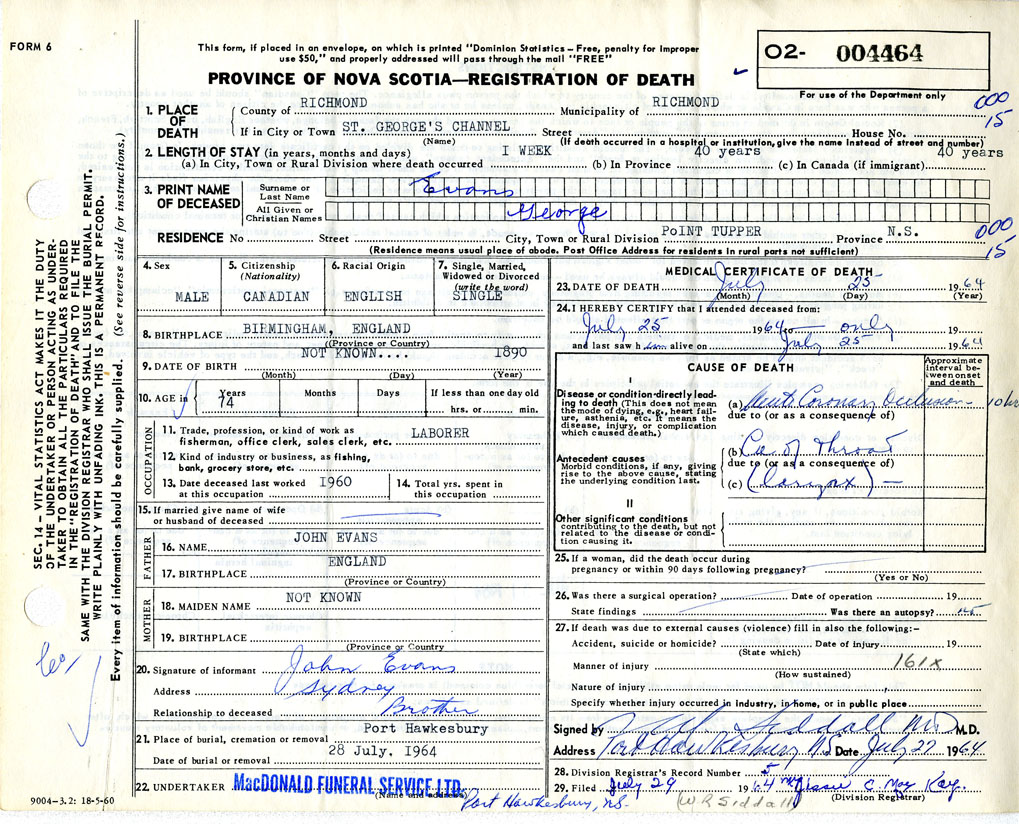 FORM 6
This form, if placed in an envelope, on which is printed "Dominion Statistics – Free, penalty for improper
use $50," and properly addressed will pass through the mail "FREE"
PROVINCE OF NOVA SCOTIA—REGISTRATION OF DEATH
O2- 004464
For use of the Department only
000
15
1. PLACE OF DEATH
County of RICHMOND Municipality of RICHMOND
If in City or Town ST. GEORGE'S CHANNEL Street House No.
(Name) (If death occurred in a hospital or institution, give the name instead of street and number)
2. LENGTH OF STAY (in years, months and days) I WEEK 40 years 40 years
(a) In City, Town or Rural Division where death occurred (b) In Province (c) In Canada (if immigrant)
3. PRINT NAME OF DECEASED
Surname or Last Name Evans
All Given or Christian Names George
RESIDENCE No Street City, Town or Rural Division PoINT TUPPER Province N.S.
(Residence means usual place of abode. Post Office Address for residents in rural parts not sufficient)
000
15
4. Sex MALE
5. Citizenship (Nationality) CANADIAN
6. Racial Origin ENGLISH
7. Single, Married, Widowed or Divorced (write the word) SINGLE
8. BIRTHPLACE BIRMINGHAM, ENGLAND
(Province or Country)
9. DATE OF BIRTH NOT KNOWN.... 1890
(Month) (Day) (Year)
10. AGE in Years 74 Months Days If less than one day old hrs. or min.
OCCUPATION
11. Trade, profession, or kind of work as fisherman, office clerk, sales clerk, etc. LABORER
12. Kind of industry or business, as fishing, bank, grocery store, etc.
13. Date deceased last worked at this occupation 1960
14. Total yrs. spent in this occupation
15. If married give name of wife or husband of deceased
FATHER
16. NAME JOHN EVANS
17. BIRTHPLACE ENGLAND
(Province or Country)
MOTHER
18. MAIDEN NAME NOT KNOWN
19. BIRTHPLACE
(Province or Country
20. Signature of informant John Evans
Address Sydney
Relationship to deceased Brother
21. Place of burial, cremation or removal Port Hawkesbury
Date of burial or removal 28 July. 1964
22. UNDERTAKER MacDONALD FUNERAL SERVICE LTD.
(Name and address) Port Hawkesbury, N.S.
MEDICAL CERTIFICATE OF DEATH
23. DATE OF DEATH July 25 1964
(Month) (Day) (Year)
24. I HEREBY CERTIFY that I attended deceased from:
July 25 1964 to only 19
and last saw him alive on July 25 1964
CAUSE OF DEATH
Approximate interval between onset and death
I
Disease or condition directly leading to death (This does not mean the mode of dying, e.g., heart failure, asthenia, etc. It means the disease, injury, or complication which caused death.)
(a) Acute Coronary Occlusion
due to (or as a consequence of)
Antecedent causes
Morbid conditions, if any, giving rise to the above cause, stating the underlying condition last.
(b) Ca. of Throat
due to (or as a consequence of)
(c) (Larynx) —
II
Other significant conditions
contributing to the death, but not related to the disease or condition causing it.
25. If a woman, did the death occur during
pregnancy or within 90 days following pregnancy?
(Yes or No)
26. Was there a surgical operation? Date of operation 19
State findings Was there an autopsy?
27. If death was due to external causes (violence) fill in also the following:–
Accident, suicide or homicide? Date of injury 19
(State which)
Manner of injury 161x
(How sustained)
Nature of injury
Specify whether injury occurred in industry, in home, or in public place
Signed by Siddall M.D. M.D.
Address Port Hawkesbury Date July 27 1964
28. Division Registrar's Record Number 5
29. Filed July 29 1964 Jessie C. MacKay.
(Division Registrar)
(W R Siddall)
SEC. 14 – VITAL STATISTICS ACT MAKES IT THE DUTY
OF THE UNDERTAKER OR PERSON ACTING AS UNDERTAKER TO OBTAIN ALL THE PARTICULARS REQUIRED
IN THE "REGISTRATION OF DEATH" AND TO FILE THE
SAME WITH THE DIVISION REGISTRAR WHO SHALL ISSUE THE BURIAL PERMIT.
WRITE PLAINLY WITH UNFADING INK. THIS IS A PERMANENT RECORD.
Every item of information should be carefully supplied. (See reverse side for instructions.)
9004-3.2: 18-5-60